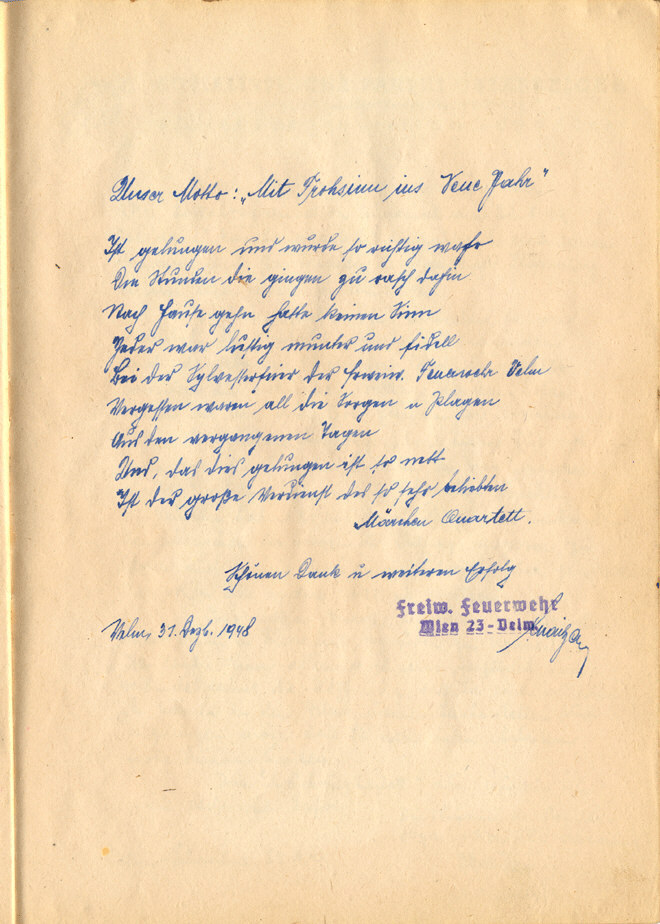 Unser Motto: „Mit Frohsinn ins Neue Jahr"
Ist gelungen und wurde so richtig wahr
Die Stunden die gingen zu rasch dahin
Nach Hause gehn hatte keinen Sinn
Jeder war lustig munter und fidell
Bei der Sylvesterfeier der freiw. Feuerwehr Velm
Vergessen waren all die Sorgen u Plagen
Aus den vergangenen Tagen
Und, das dies gelungen ist so nett
Ist der große Verdienst des so sehr beliebten
Märchen Quartett.
Schönen Dank u weiteren Erfolg
Freiw. Feuerwehr
Wien 23-Velm
Velm, 31. Dezb. 1948